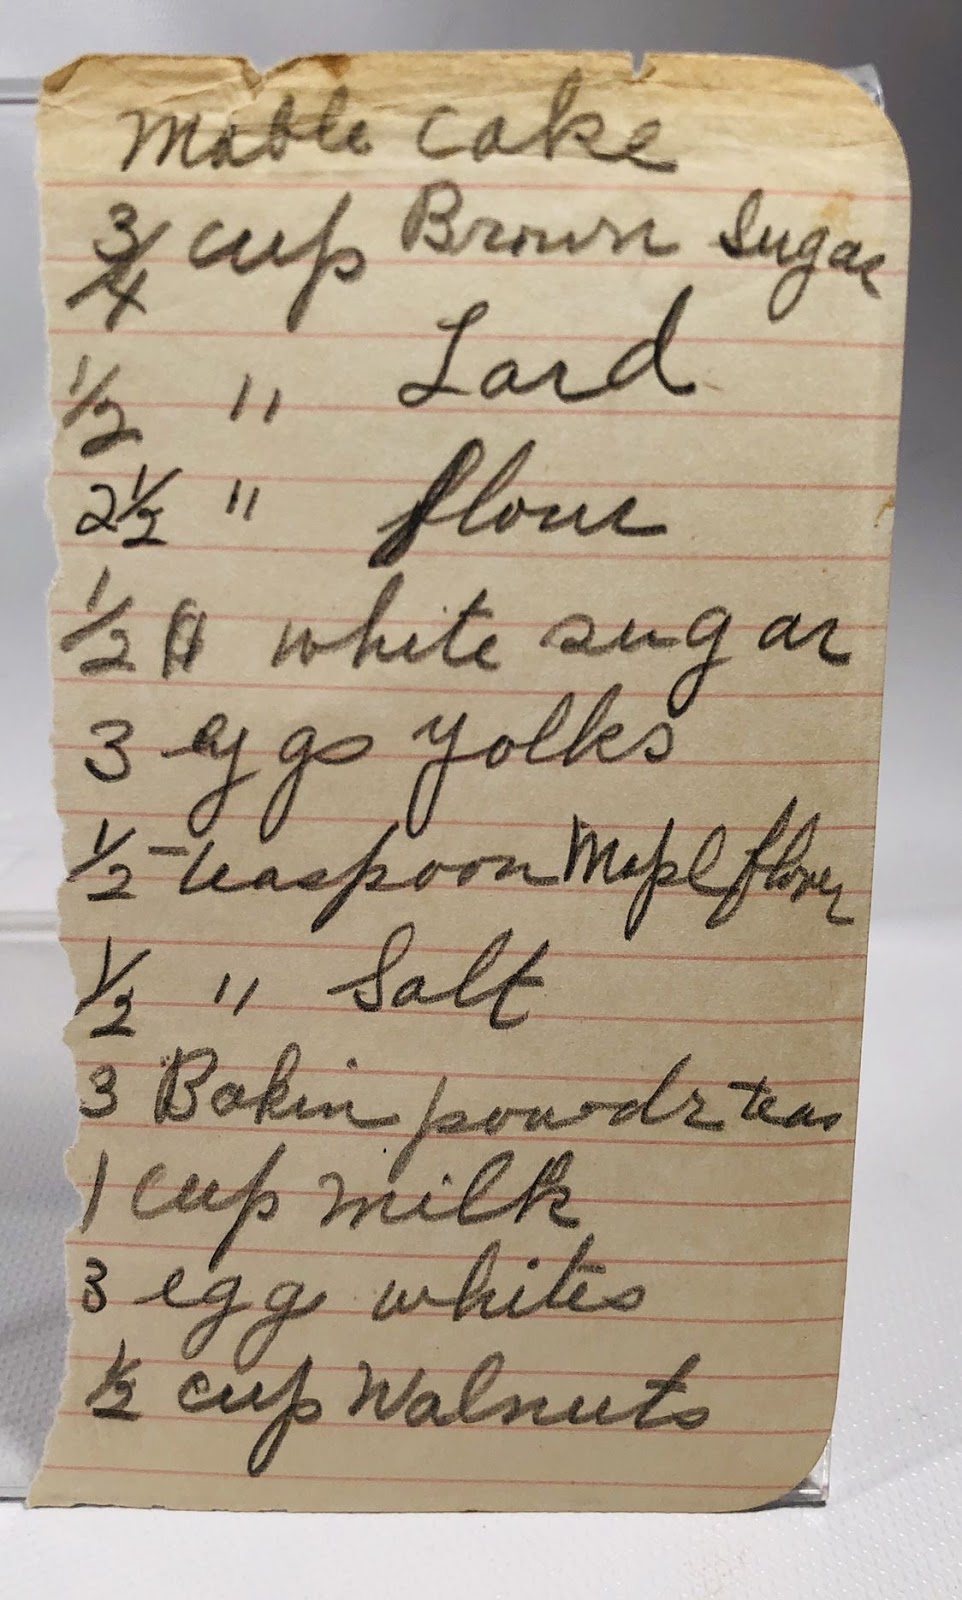 Mable cake
3/4 cup Brown Sugar
1/2 " Lard
2 1/2 " flour
1/2 " white sugar
3 eggs yolks
1/2 - teaspoon Mapl flover
1/2 " Salt
3 Bakin powdr teas
1 cup milk
3 egg whites
1/2 cup Walnuts